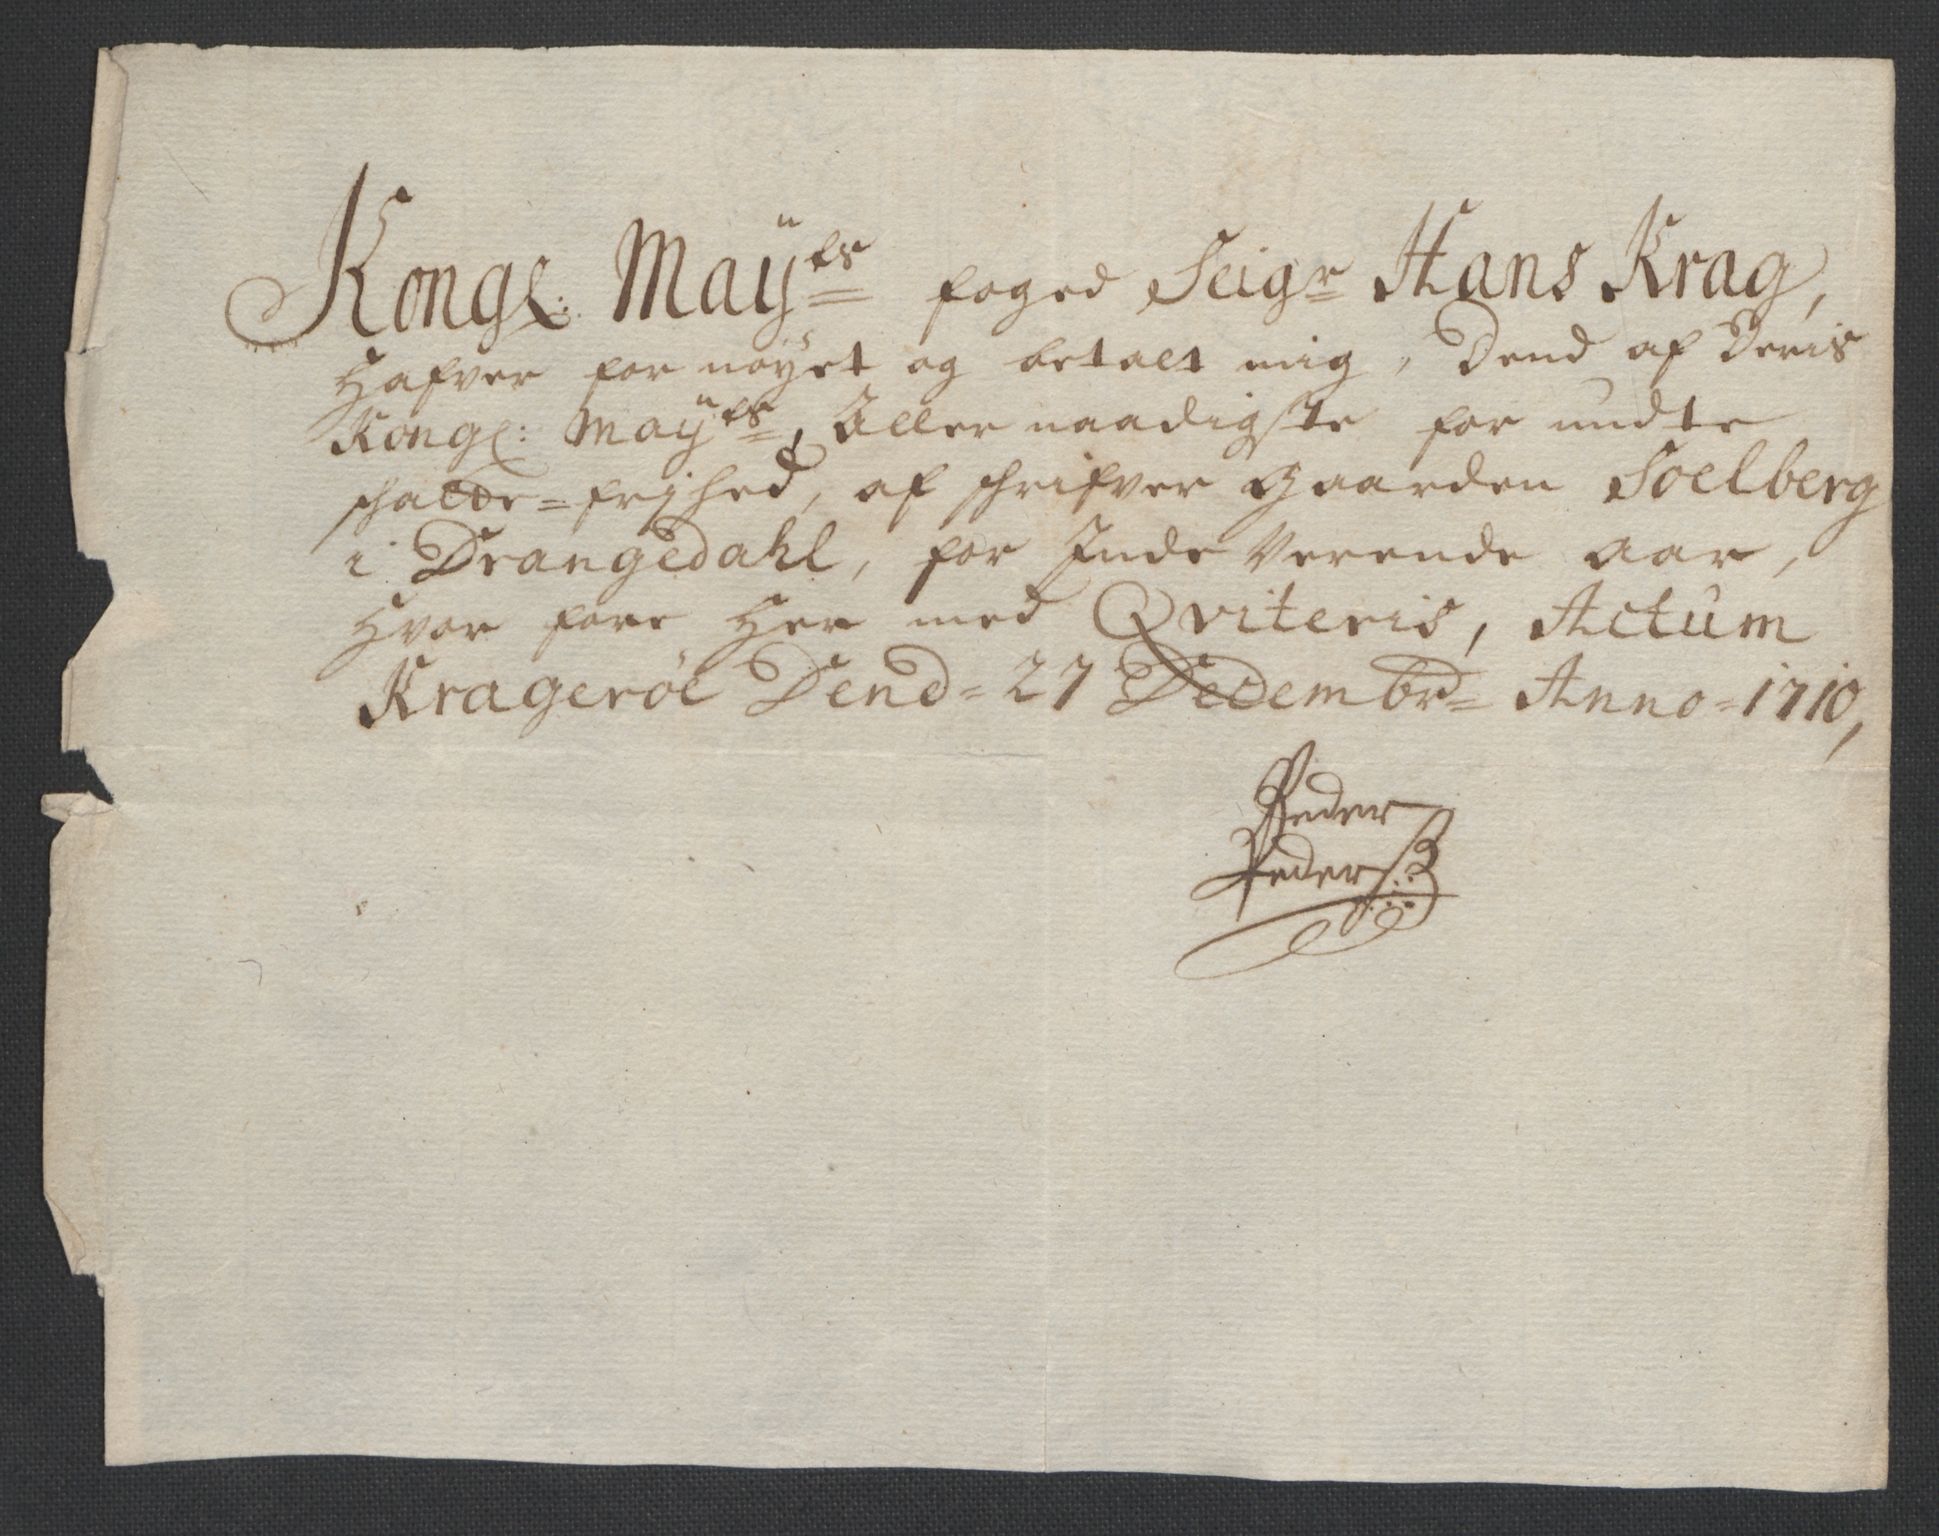 Kongl: Maÿ<sup>ts</sup> foged Seig<sup>r</sup> Hans Krag,
Hafver for nøyet og betalt mig, Dend af Deris
Kongl: Maÿ<sup>ts</sup>, Aller naadigste for undte
schatte=frjhed, af schrifver gaarden Soelberg
i Drangedahl, for Inde Verende aar,
Hvor fore Her med Qviteris, Actum
Krageröe Dend= 27 Decembr= Anno=1710,
Peder
Pederß